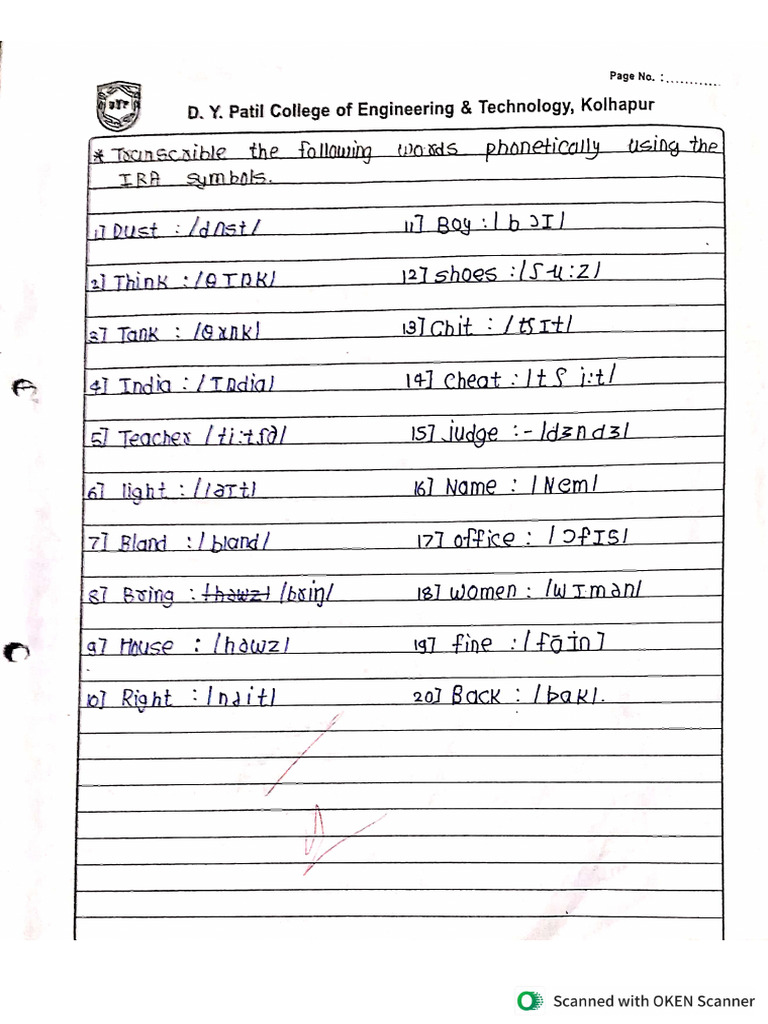 Page No. :............
D. Y. Patil College of Engineering & Technology, Kolhapur
* Transcrible the following words phonetically using the
IRA symbols.
1] Dust : /dnst/
2] Think : /θIDK/
3] Tank : /θxnk/
4] India : /IDdia/
5] Teacher /ti:tʃə/
6] light : /laIt/
7] Bland : /bland/
8] Bring : /hawz/ /briŋ/
9] House : /hawz/
10] Right : /nait/
11] Boy : /bɔI/
12] shoes : /ʃu:z/
13] Chit : /tʃIt/
14] Cheat : /tʃi:t/
15] judge :- /dʒndʒ/
16] Name : /Nem/
17] office : /ɔfIS/
18] women : /wIman/
19] fine : /fāin]
20] Back : /bak/.
Scanned with OKEN Scanner